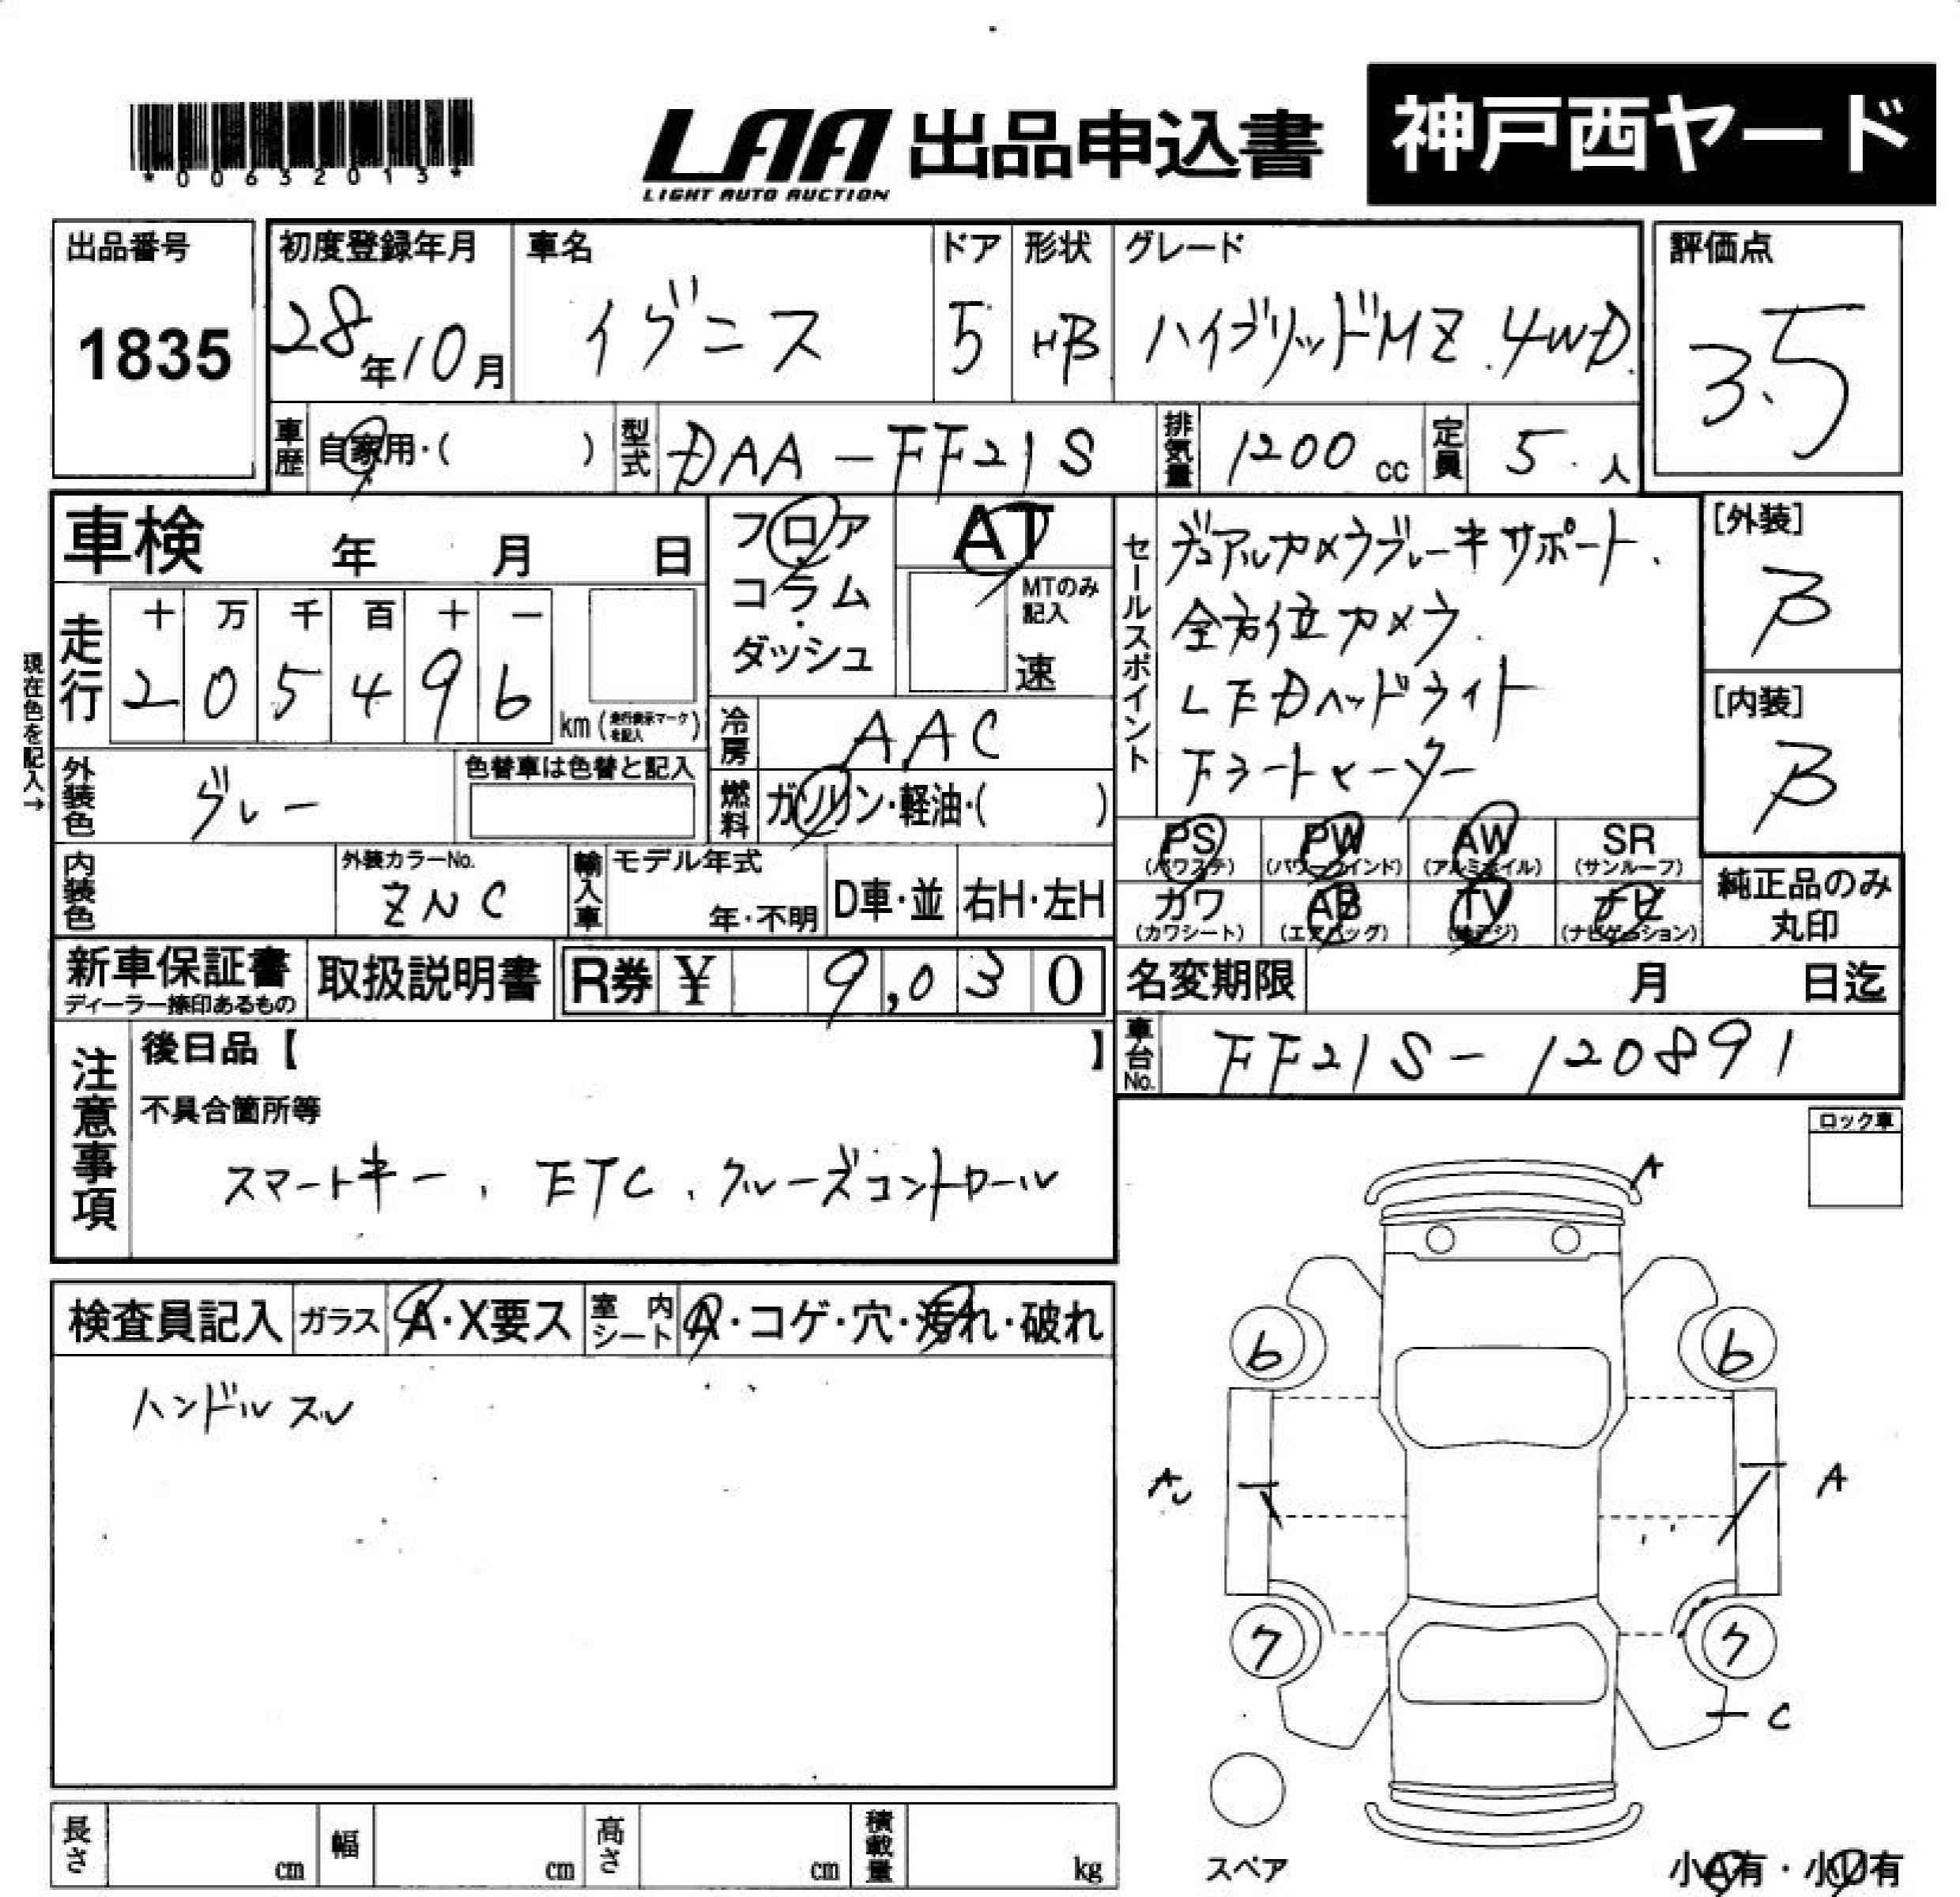 *00632013*
LAA 出品申込書 神戸西ヤード
LIGHT AUTO AUCTION
出品番号
1835
初度登録年月
28年10月
車名
イグニス
ドア
5
形状
HB
グレード
ハイブリッドMZ.4WD
評価点
3.5
車歴 自家用・( )
型式 DAA-FF21S
排気量 1200cc
定員 5人
車検 年 月 日
走行 十 万 千 百 十 一
205496
km(走行表示マークを記入)
現在色を記入→
フロア
コラム
ダッシュ
AT
MTのみ
記入
速
冷房 AAC
燃料 ガソリン・軽油・( )
セールスポイント
デュアルカメラブレーキサポート.
全方位カメラ.
LEDヘッドライト
Fシートヒーター
[外装]
B
[内装]
B
外装色 グレー
色替車は色替と記入
内装色
外装カラーNo.
ZNC
輸入車
モデル年式
年・不明
D車・並
右H・左H
PS (パワステ)
PW (パワーウインド)
AW (アルミホイル)
SR (サンルーフ)
カワ (カワシート)
AB (エアバッグ)
TV (地デジ)
ナビ (ナビゲーション)
純正品のみ
丸印
新車保証書
ディーラー捺印あるもの
取扱説明書
R券 ¥ 9,030
名変期限 月 日迄
車台No. FF21S-120891
注意事項
後日品【 】
不具合箇所等
スマートキー、ETC、クルーズコントロール
ロック車
検査員記入 ガラス A・X要ス 室内シート A・コゲ・穴・汚れ・破れ
ハンドルスレ
A
6 6
AU A
7 7
C
長さ cm 幅 cm 高さ cm 積載量 kg
スペア
小A有・小U有